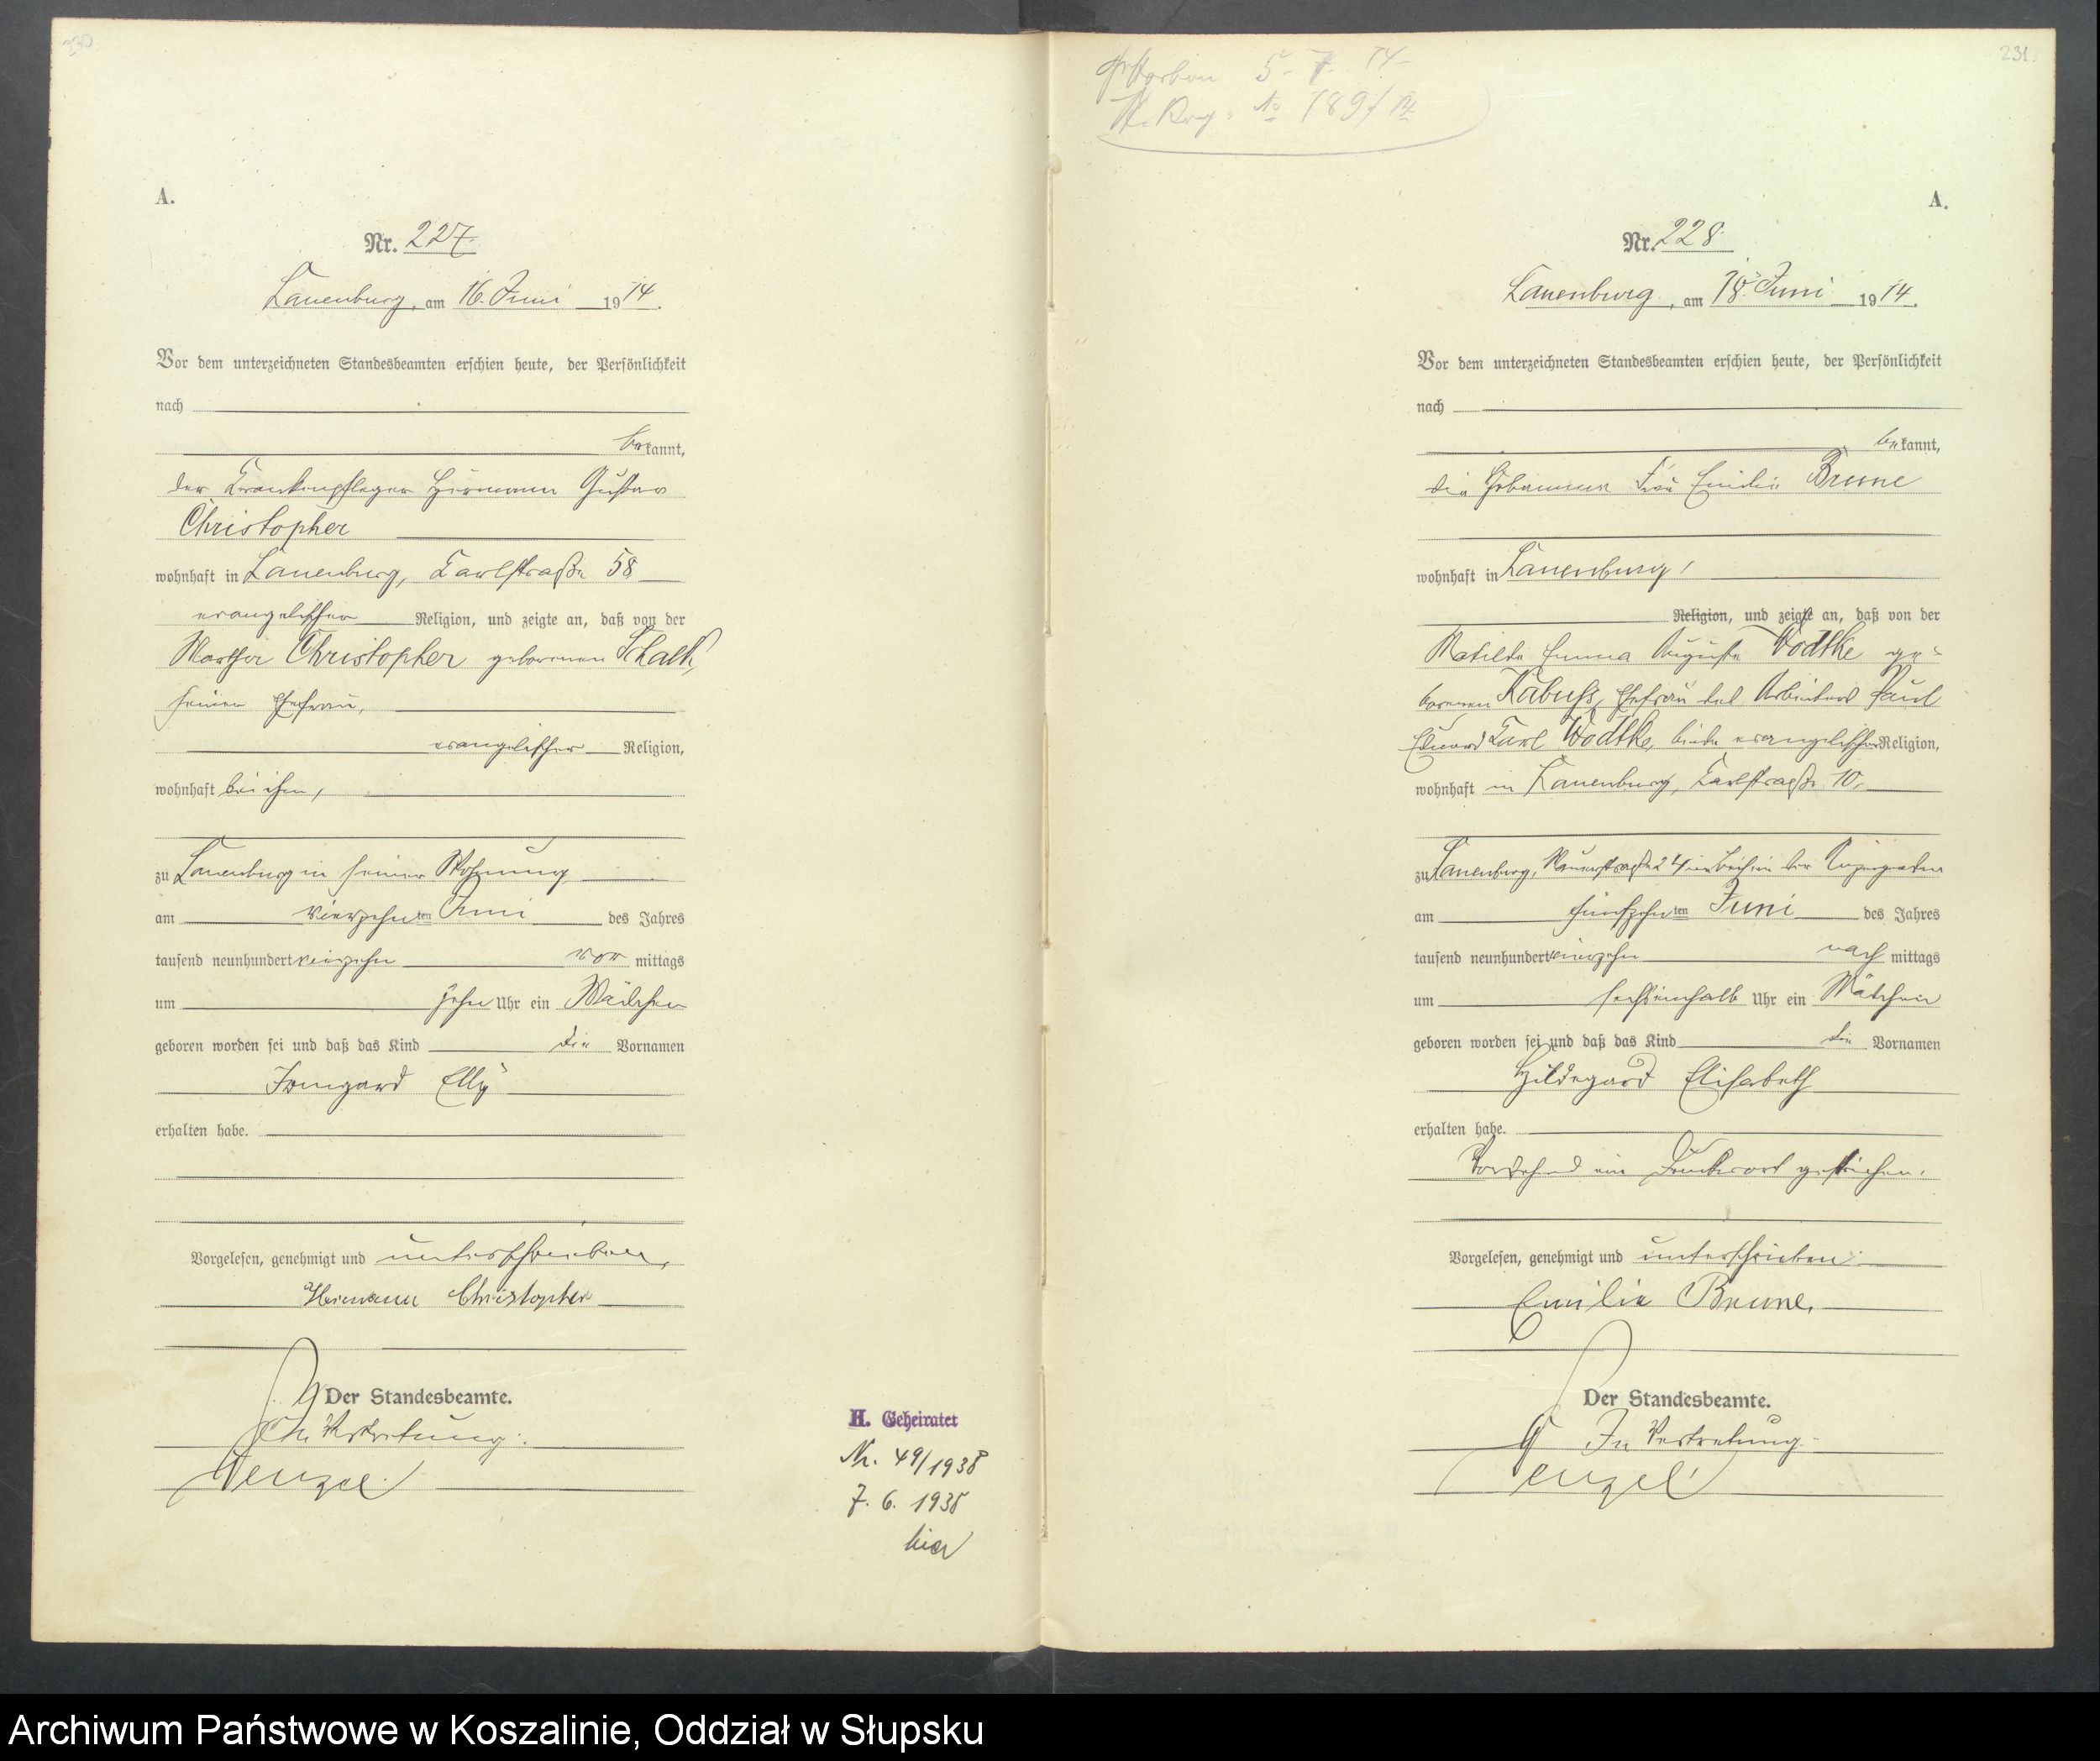 A.
Nr. 227.
Lauenburg, am 16. Juni 1914.
Vor dem unterzeichneten Standesbeamten erschien heute, der Persönlichkeit
nach
bekannt,
der Krankenpfleger Hermann Gustav
Christopher
wohnhaft in Lauenburg, Karlstraße 58
evangelischer Religion, und zeigte an, daß von der
Martha Christopher geborenen Schalk,
seiner Ehefrau,
evangelischer Religion,
wohnhaft bei ihm,
zu Lauenburg in seiner Wohnung
am vierzehnten Juni des Jahres
tausend neunhundert vierzehn vor mittags
um zehn Uhr ein Mädchen
geboren worden sei und daß das Kind die Vornamen
Irmgard Elly
erhalten habe.
Vorgelesen, genehmigt und unterschrieben,
Hermann Christopher
Der Standesbeamte.
In Vertretung.
Wenzel
H. Geheiratet
Nr. 49/1938
7. 6. 1938
hier
231.
Gestorben 5. 7. 14
St. Reg. No 189/14
A.
Nr. 228
Lauenburg, am 18. Juni 1914.
Vor dem unterzeichneten Standesbeamten erschien heute, der Persönlichkeit
nach
bekannt,
die Hebamme Frau Emilie Brune
wohnhaft in Lauenburg,
Religion, und zeigte an, daß von der
Matilde Emma Auguste Wodtke ge-
borenen Kabuss, Ehefrau des Arbeiters Paul
Eduard Karl Wodtke, beide evangelischer Religion,
wohnhaft in Lauenburg, Karlstraße 10,
zu Lauenburg, 24 im Beisein der Anzeigenden
am fünfzehnten Juni des Jahres
tausend neunhundert vierzehn nach mittags
um sechseinhalb Uhr ein Mädchen
geboren worden sei und daß das Kind die Vornamen
Hildegard Elisabeth
erhalten habe.
Vorstehend ein Druckwort gestrichen.
Vorgelesen, genehmigt und unterschrieben
Emilie Brune.
Der Standesbeamte.
In Vertretung.
Wenzel
Archiwum Państwowe w Koszalinie, Oddział w Słupsku